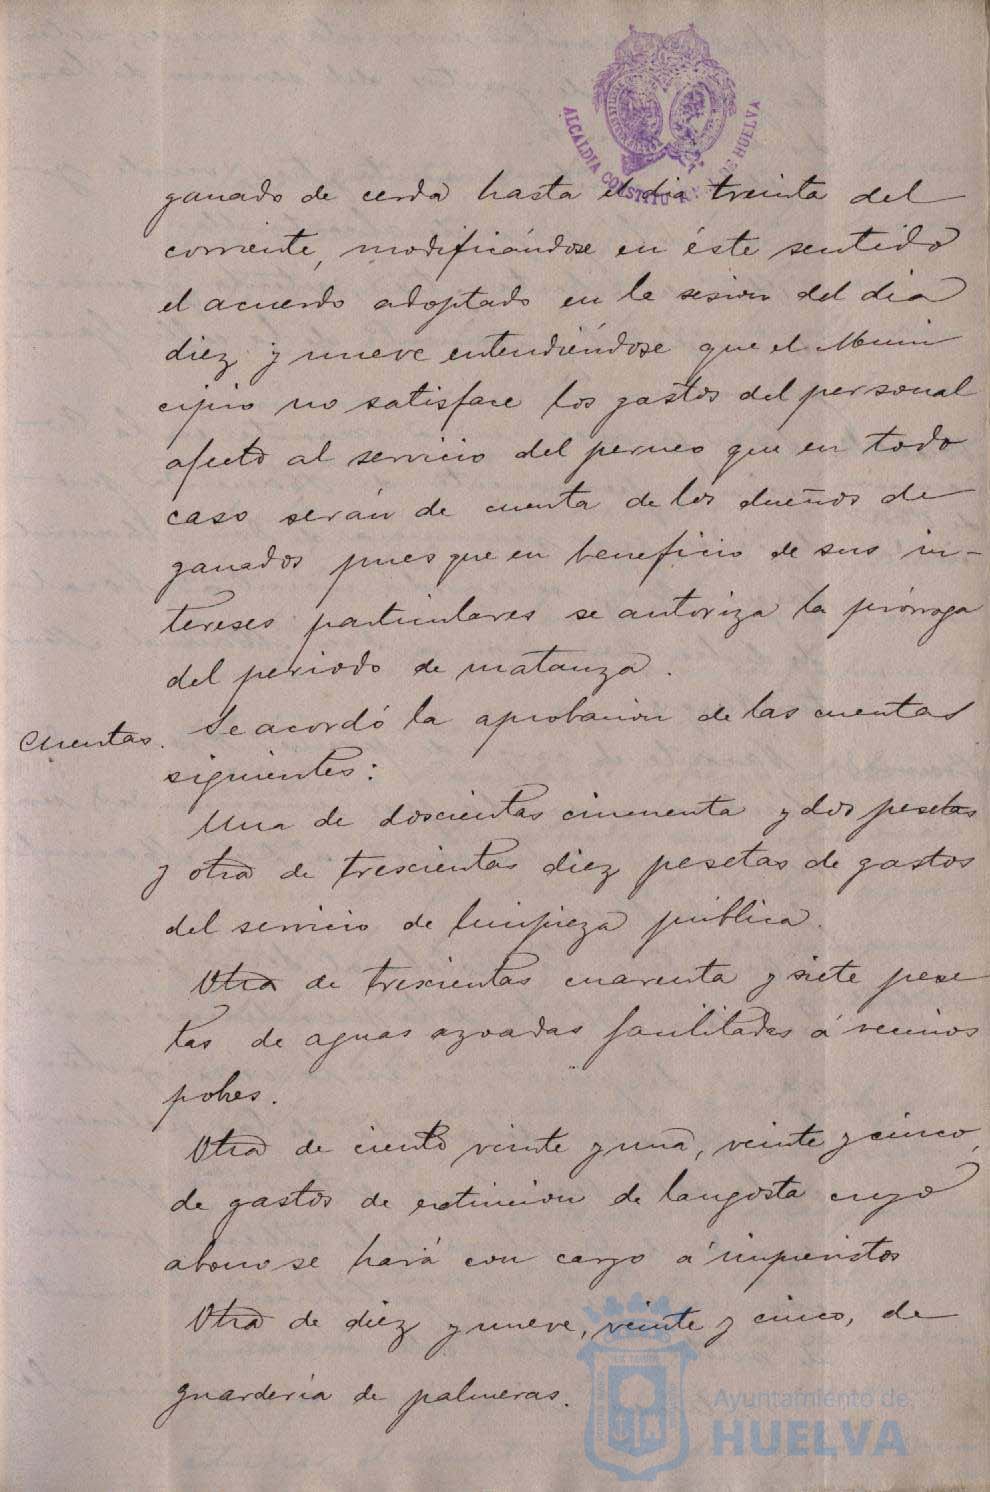 ALCALDIA CONSTITU DE HUELVA
ganado de cerda hasta el dia treinta del
corriente, modificándose en éste sentido
el acuerdo adoptado en la sesion del dia
diez y nueve entendiéndose que el Muni
cipio no satisface los gastos del personal
afecto al servicio del perneo que en todo
caso serán de cuenta de los dueños de
ganados pues que en beneficio de sus in-
tereses particulares se autoriza la prórroga
del periodo de matanza.
Cuentas. Se acordó la aprobacion de las cuentas
siguientes:
Una de doscientas cincuenta y dos pesetas
y otra de trescientas diez pesetas de gastos
del servicio de limpieza pública.
Otra de trescientas cuarenta y siete pese
tas de aguas azoadas facilitadas á vecinos
pobres.
Otra de ciento veinte y una, veinte y cinco,
de gastos de extincion de langosta cuyo
abono se hará con cargo á imprevistos
Otra de diez y nueve, veinte y cinco, de
guardería de palmeras.
Ayuntamiento de
HUELVA